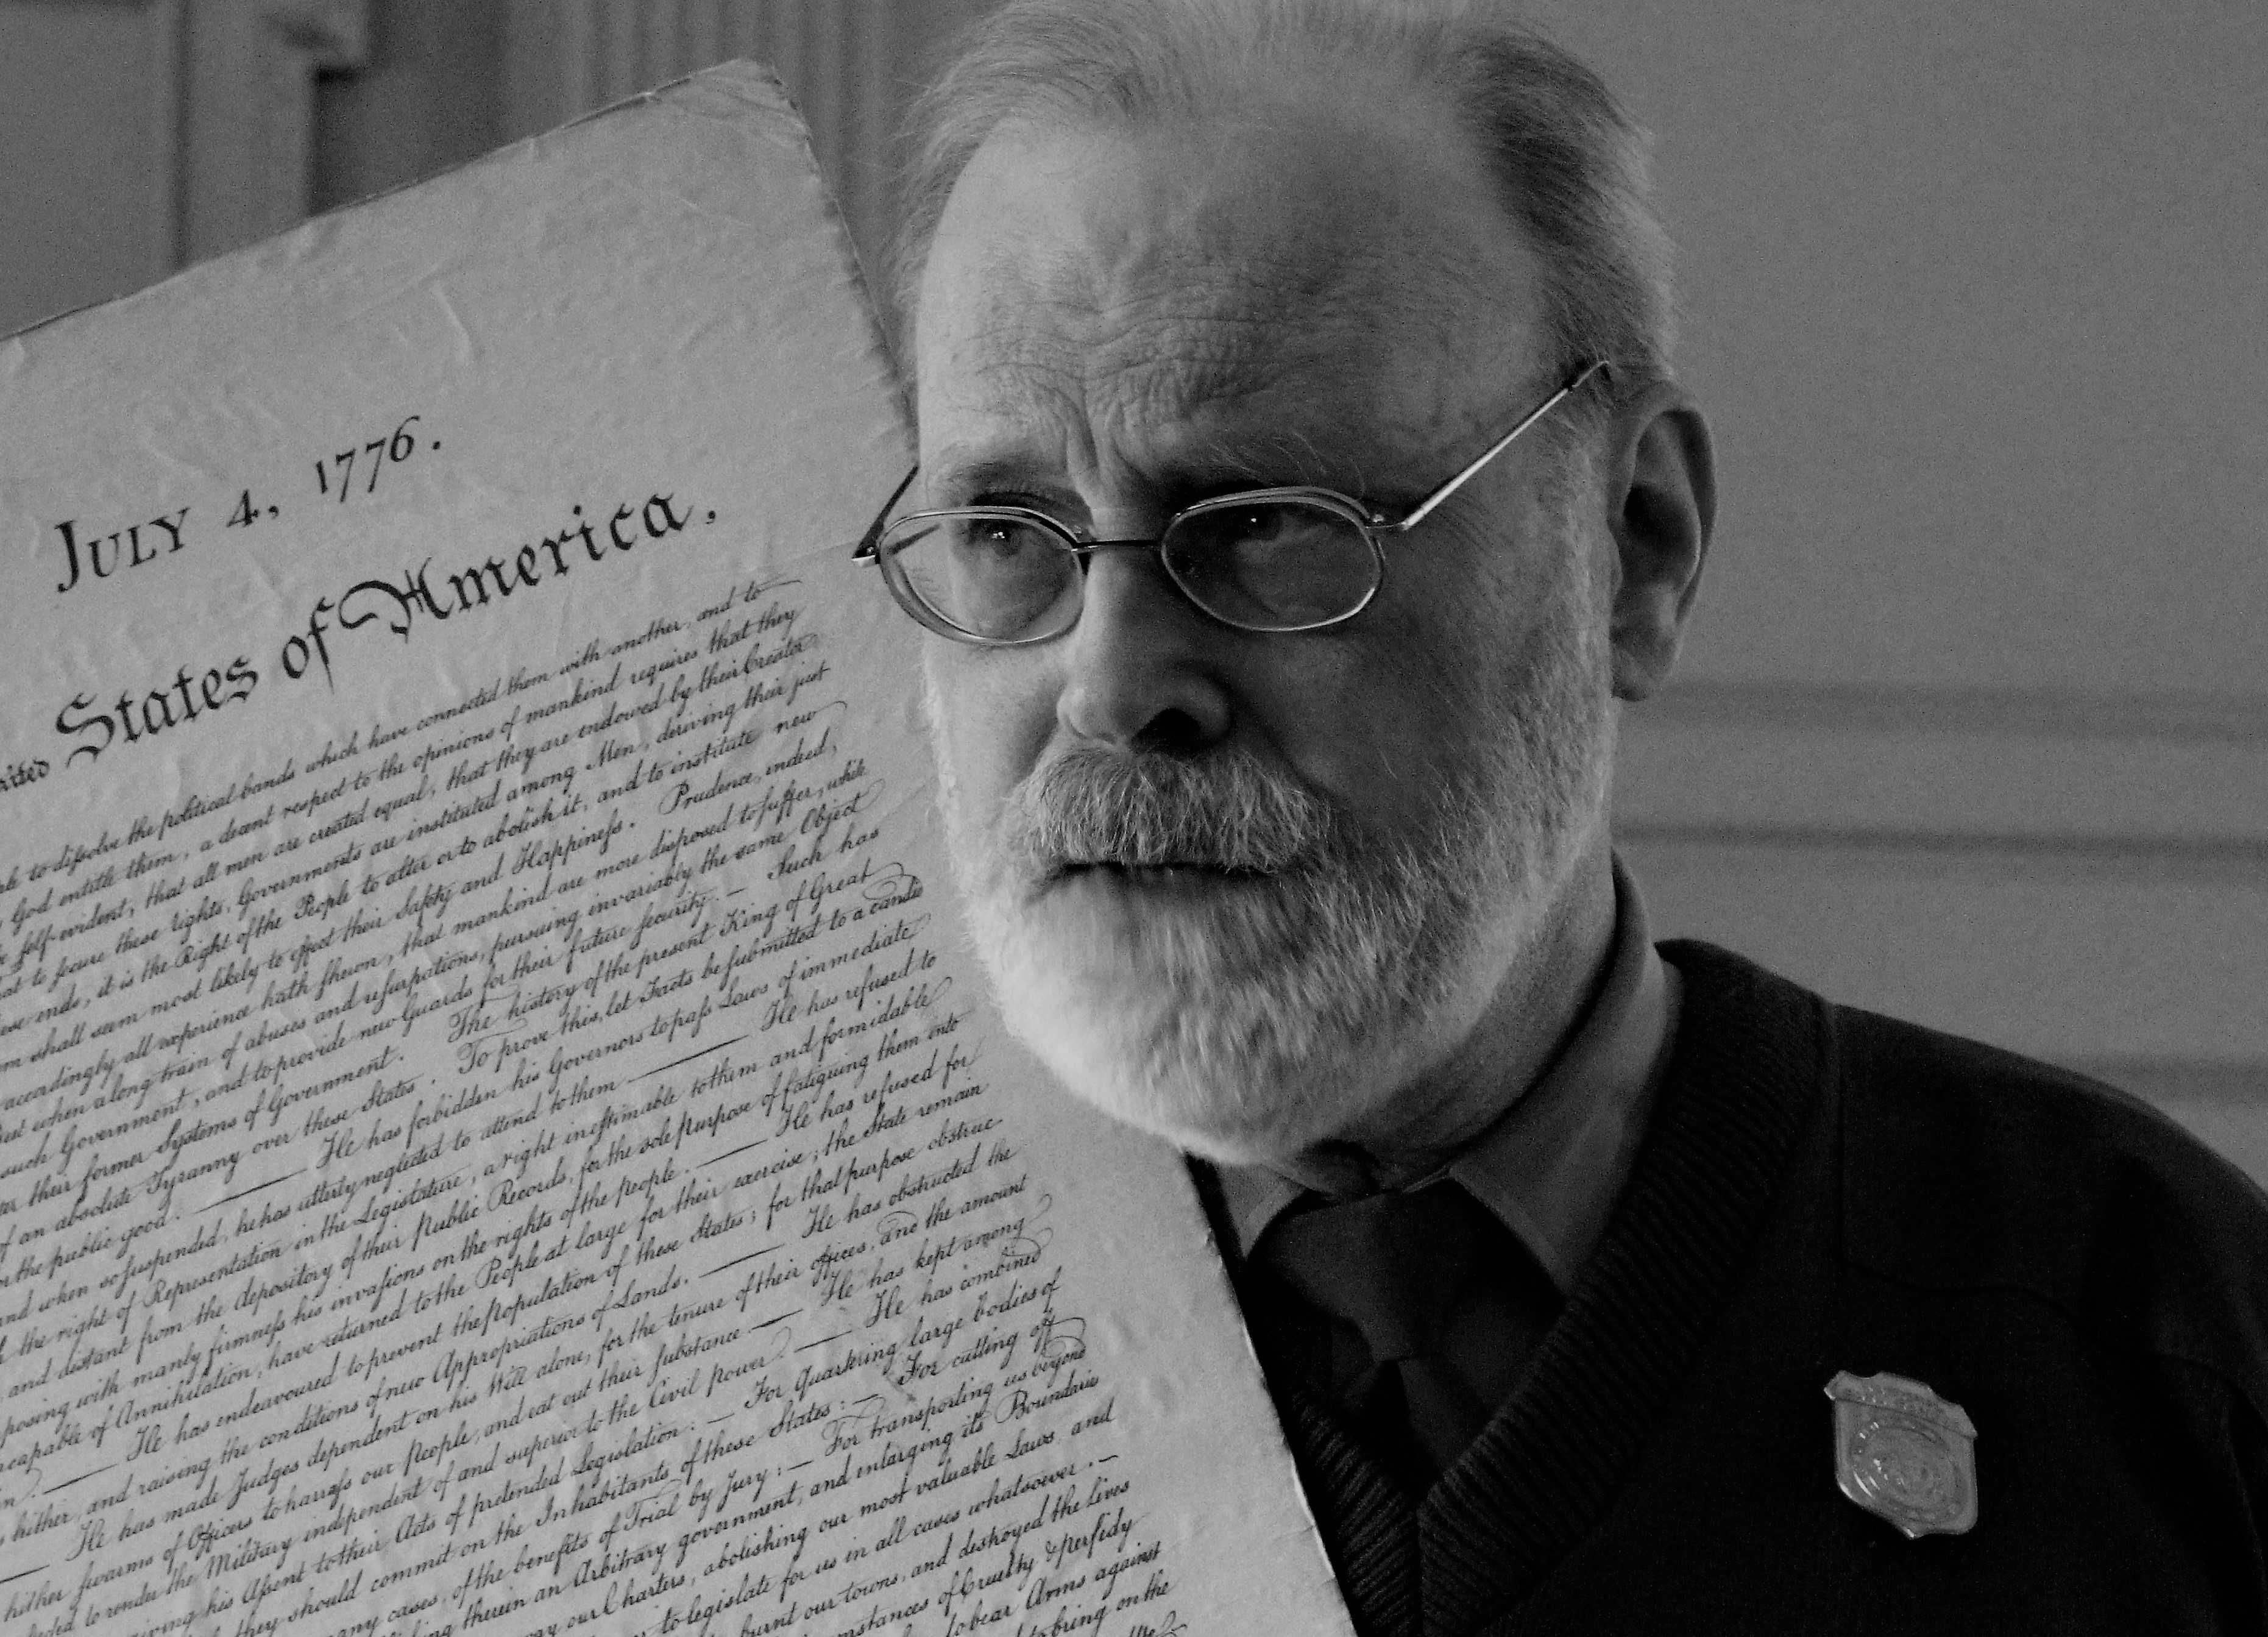 JULY 4, 1776.
States of America,
to dissolve the political bands which have connected them with another, and to
God entitle them, a decent respect to the opinions of mankind requires that they
self-evident, that all men are created equal, that they are endowed by their Creator
to secure these rights, Governments are instituted among Men, deriving their just
ends, it is the Right of the People to alter or to abolish it, and to institute new
shall seem most likely to effect their Safety and Happiness. Prudence, indeed,
accordingly all experience hath shewn, that mankind are more disposed to suffer, while
when a long train of abuses and usurpations, pursuing invariably the same Object
such Government, and to provide new Guards for their future security. — Such has
their former Systems of Government. The history of the present King of Great
of an absolute Tyranny over these States. To prove this, let Facts be submitted to a candid
the public good. — He has forbidden his Governors to pass Laws of immediate
and when so suspended, he has utterly neglected to attend to them — He has refused to
the right of Representation in the Legislature, a right inestimable to them and formidable
and distant from the depository of their Public Records, for the sole purpose of fatiguing them into
posing with manly firmness his invasions on the rights of the people. — He has refused for
incapable of Annihilation, have returned to the People at large for their exercise; the State remain
— He has endeavoured to prevent the population of these States; for that purpose obstruc
hither, and raising the conditions of new Appropriations of Lands. — He has obstructed the
— He has made Judges dependent on his Will alone, for the tenure of their offices, and the amount
hither swarms of Officers to harrass our People, and eat out their substance. — He has kept among
to render the Military independent of and superior to the Civil power. — He has combined
giving his Assent to their Acts of pretended Legislation: — For Quartering large bodies of
they should commit on the Inhabitants of these States: — For cutting off
many cases, of the benefits of Trial by Jury: — For transporting us beyond
therein an Arbitrary government, and enlarging its Boundaries
away our Charters, abolishing our most valuable Laws, and
to legislate for us in all cases whatsoever. —
burnt our towns, and destroyed the Lives
of Cruelty & perfidy
to bear Arms against
to bring on the